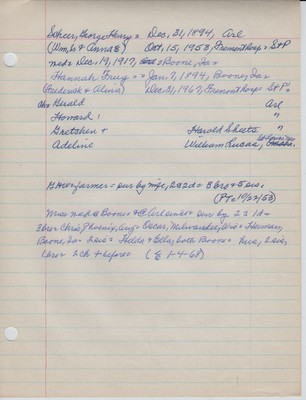 Scheer, George Henry = Dec, 31, 1894, Arl
(Wm, & Anna E) Oct, 15, 1953, Fremont Hosp = S+P
med = Dec, 19, 1917, Boone, Ia =
Hannah Frug = = Jan, 7, 1894, Boone, Ia =
(Frederick & Alvina) Dec 31, 1967, Fremont Hosp = S+P
chs Gerald Arl
Howard, "
Gretchen + Harold Sheets "
Adeline William Lucas,
G.H. = farmer = sur by wife, 2 s 2 d = 5 bro + 5 sis,
(PTr 10/22/53)
Mrs = med @ Boone = @ Arl since = sur by 2 s 1 d =
3 bro = Chris, Phoenix, Aug = Oscar, Milwaukee, Wis = Herman,
Boone, Ia = 2 sis = Hulda + Ella, both Boone = Hus, 2 sis,
1 bro 2 ch + before (E 1-4-68)